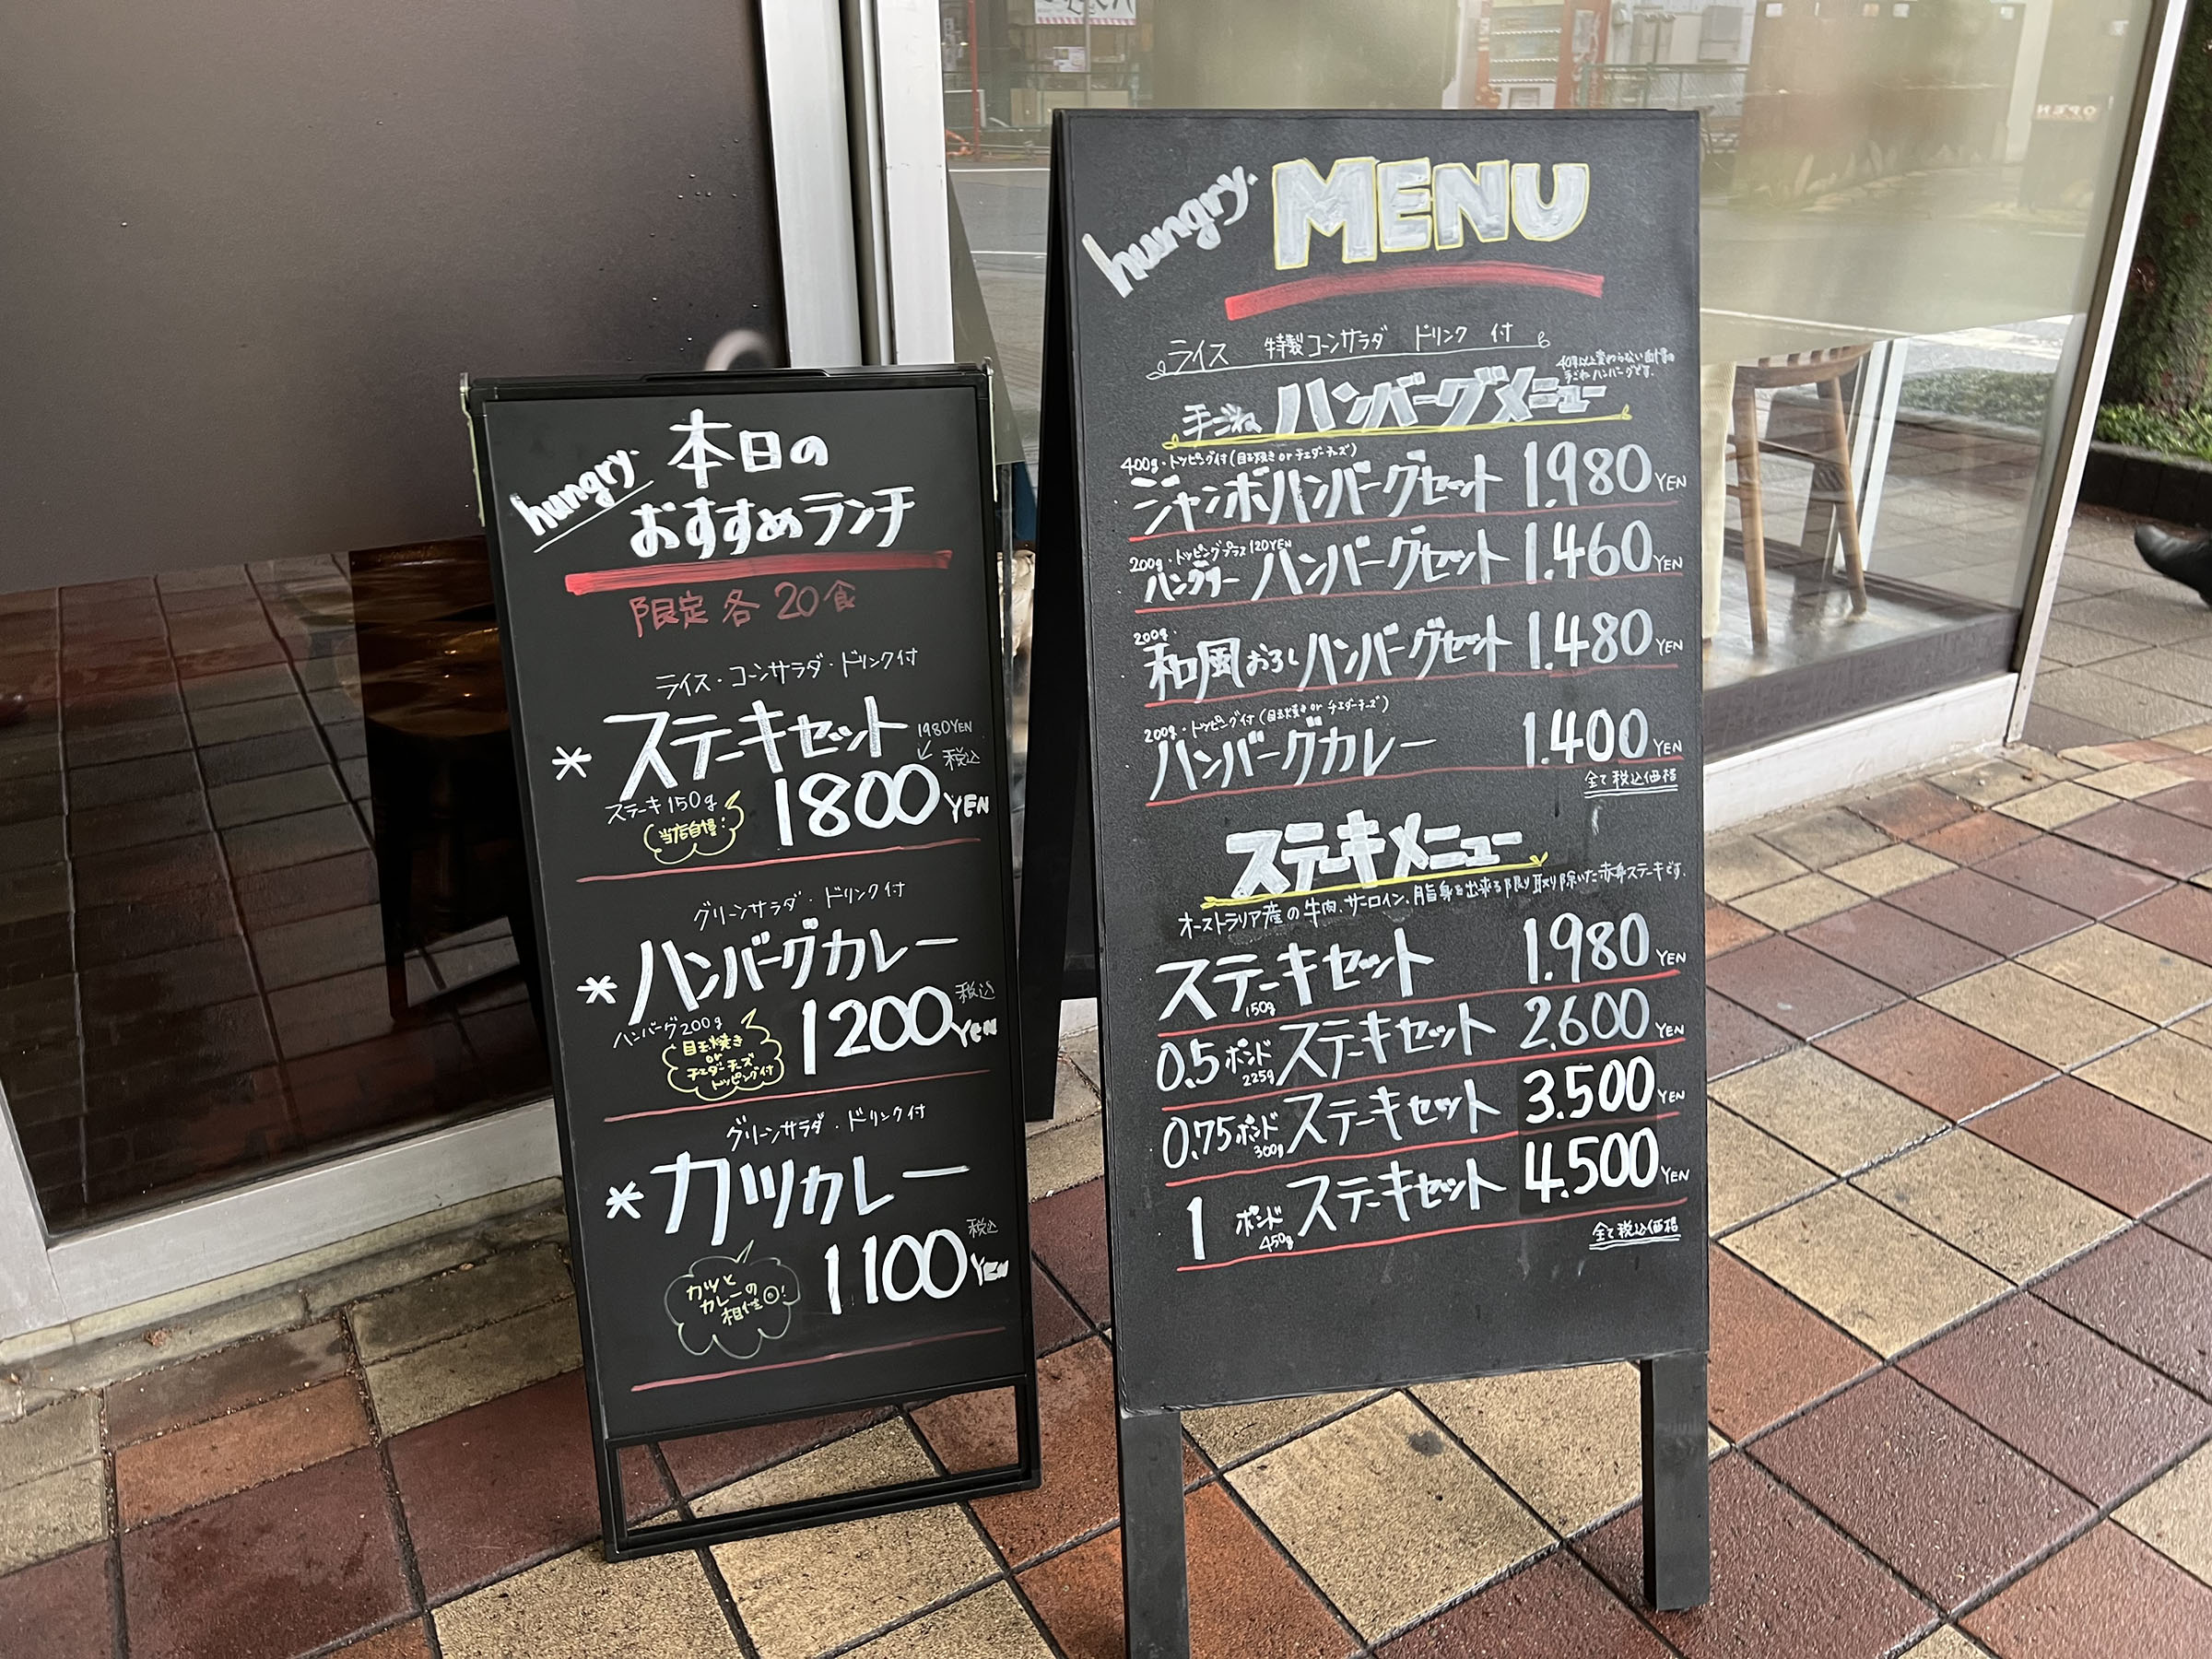 hungry.
本日の
おすすめランチ
限定 各 20食
ライス・コーンサラダ・ドリンク付
* ステーキセット
1980YEN
ステーキ150g
当店自慢!
1800YEN 税込
グリーンサラダ・ドリンク付
* ハンバーグカレー
ハンバーグ200g
目玉焼き
or
チェダーチーズ
トッピング付
1200YEN 税込
グリーンサラダ・ドリンク付
* カツカレー
カツと
カレーの
相性◎!
1100YEN 税込
hungry. MENU
ライス 特製コーンサラダ ドリンク 付
手ごねハンバーグメニュー
手ごねハンバーグです.
400g・トッピング付(目玉焼き or チェダーチーズ)
ジャンボハンバーグセット 1.980YEN
200g・トッピングプラス120YEN
ハングリーハンバーグセット 1.460YEN
200g・
和風おろしハンバーグセット 1.480YEN
200g・トッピング付(目玉焼き or チェダーチーズ)
ハンバーグカレー 1.400YEN
全て税込価格
ステーキメニュー
オーストラリア産の牛肉、サーロイン、脂身を出来る限り取り除いた赤身ステーキです.
ステーキセット 150g 1.980YEN
0.5ポンド 225g ステーキセット 2.600YEN
0.75ポンド 300g ステーキセット 3.500YEN
1ポンド 450g ステーキセット 4.500YEN
全て税込価格
OPEN